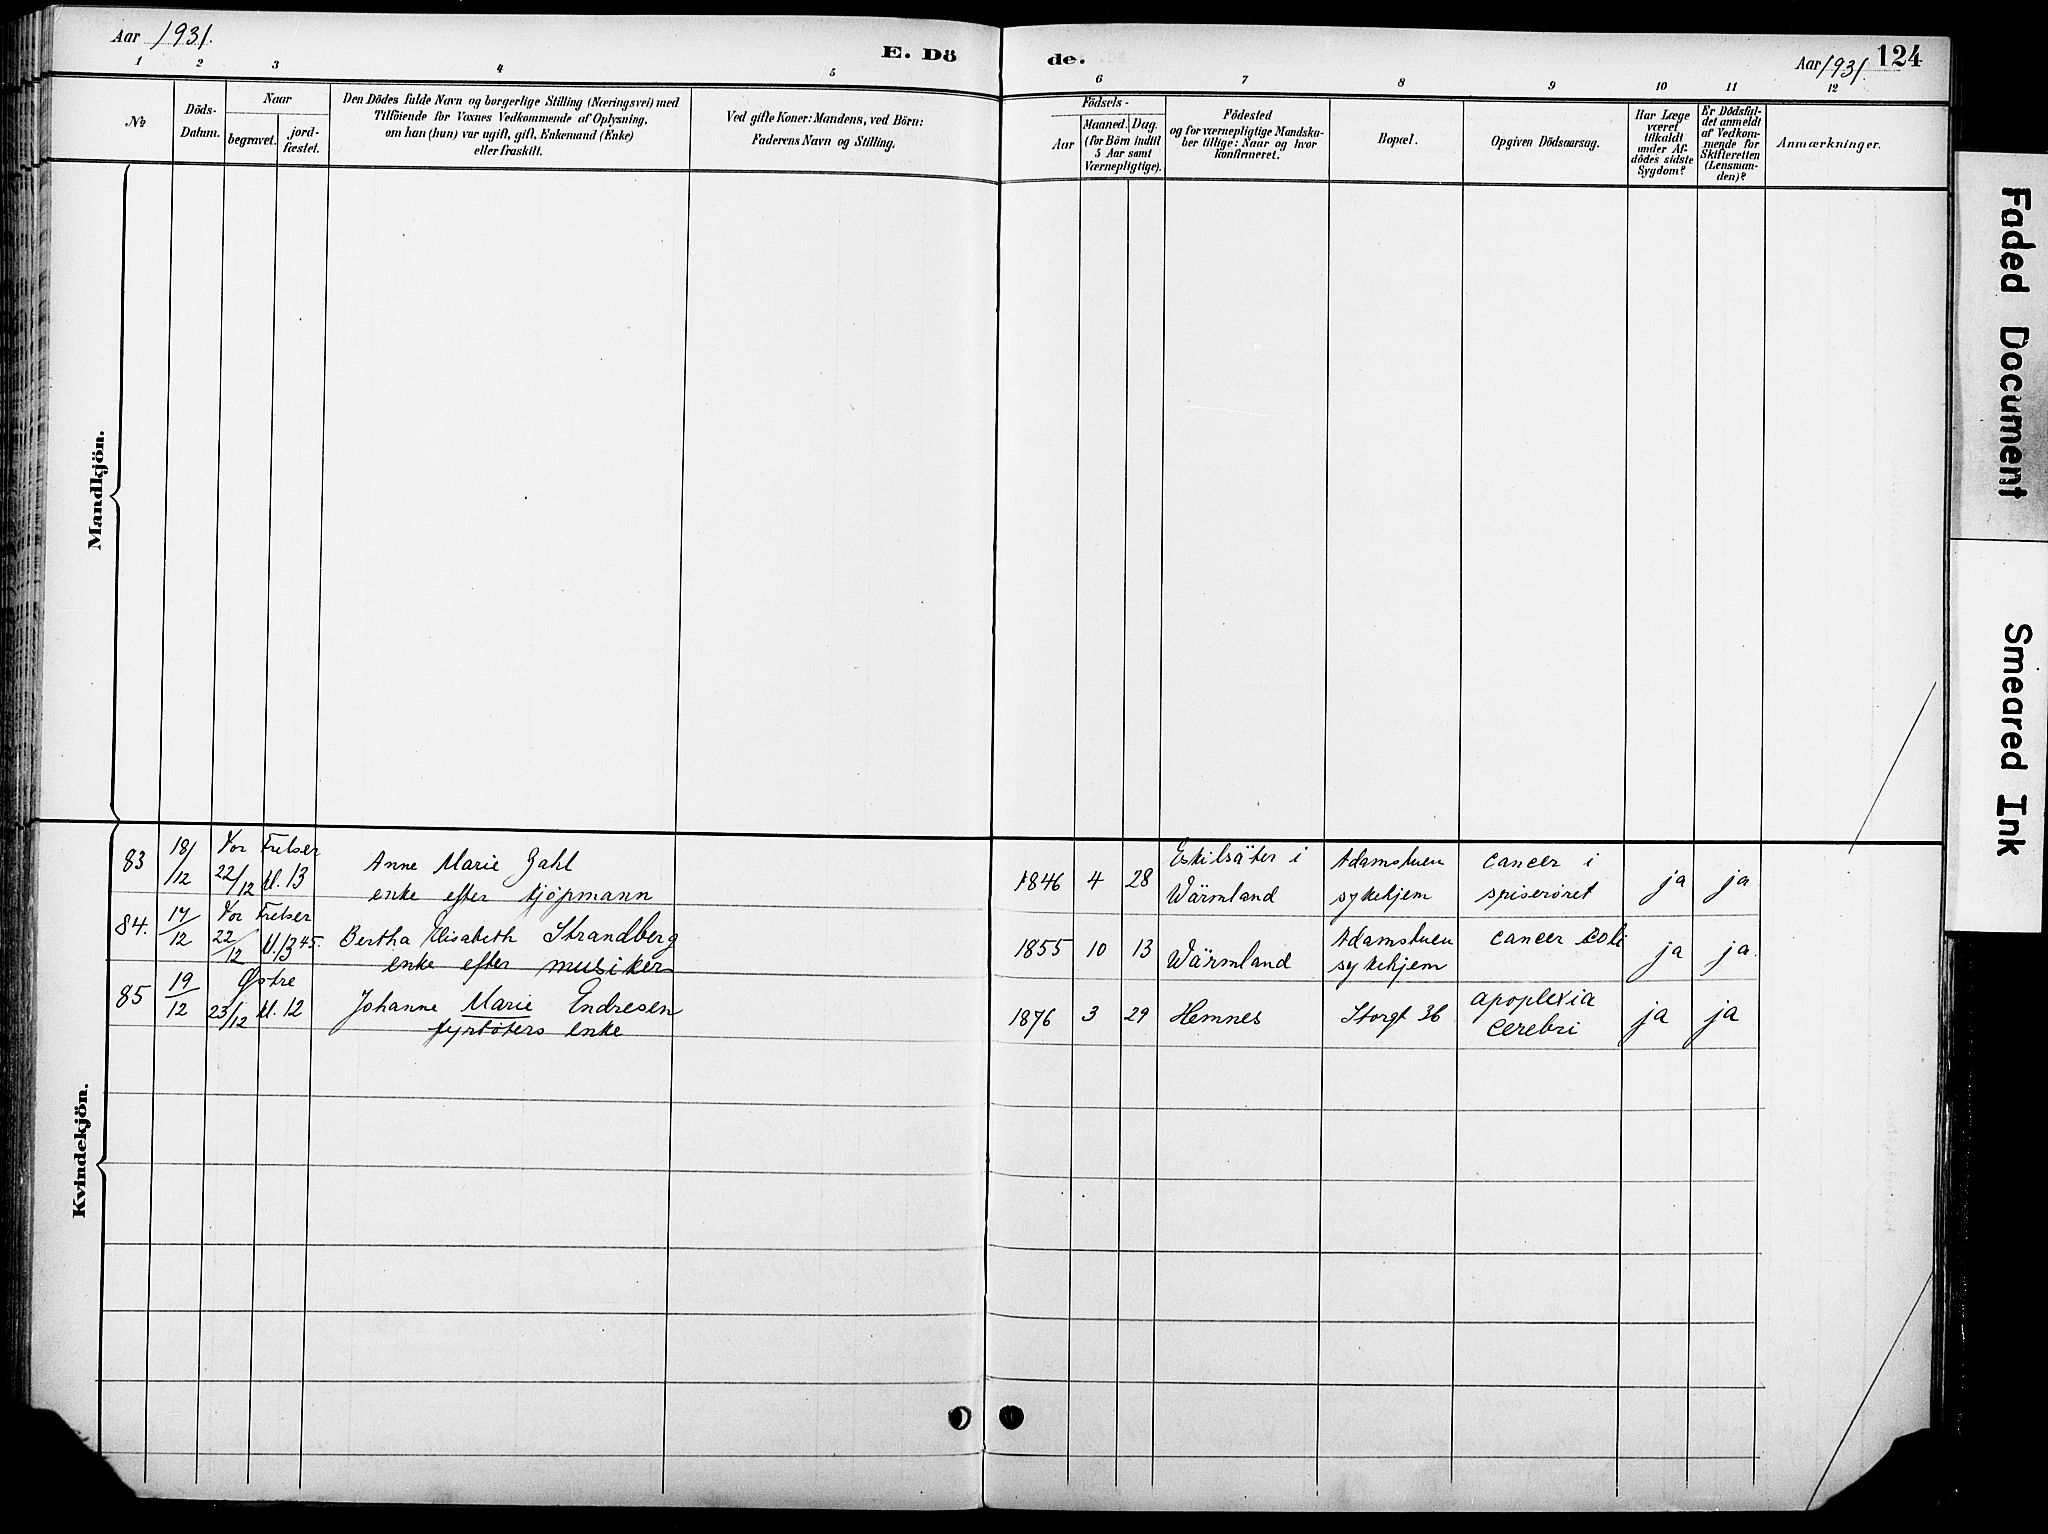 Aar 1931.
E. Dö
de.
Aar 1931.
124
1 2 3 4 5 6 7 8 9 10 11 12
№
Döds-
Datum.
Naar
begravet.
jord-
fæstet.
Den Dödes fulde Navn og borgerlige Stilling (Næringsvei) med
Tilföiende for Voxnes Vedkommende af Oplysning,
om han (hun) var ugift, gift, Enkemand (Enke)
eller fraskilt.
Ved gifte Koner: Mandens, ved Börn:
Faderens Navn og Stilling.
Födsels-
Aar
Maaned. Dag.
(for Börn indtil
5 Aar samt
Værnepligtige).
Födested
og for værnepligtige Mandska-
ber tillige: Naar og hvor
konfirmeret.
Bopæl.
Opgiven Dödsaarsag.
Har Læge
været
tilkaldt
under Af-
dödes sidste
Sygdom?
Er Dödsfal-
det anmeldt
af Vedkom-
mende for
Skifteretten
(Lensman-
den)?
Anmærkninger.
Mandkjön.
Kvindekjön.
83
18/12
Vor Frelser
22/12 kl. 13
Anne Marie Dahl
enke efter kjøpmann
1846 4 28
Eskilsäter i
Wärmland
Adamstuen
sykehjem
cancer i
spiserøret
ja ja
84.
17/12
Vor Frelser
22/12 kl. 13 45.
Bertha Elisabeth Strandberg
enke efter musiker
1855 10 13
Wärmland
Adamstuen
sykehjem
cancer coli
ja ja.
85
19/12
Østre
23/12 kl. 12
Johanne Marie Endresen
fyrbøters enke
1876 3 29
Hemnes
Storgt 36
apoplexia
cerebri
ja ja
Faded Document
Smeared Ink